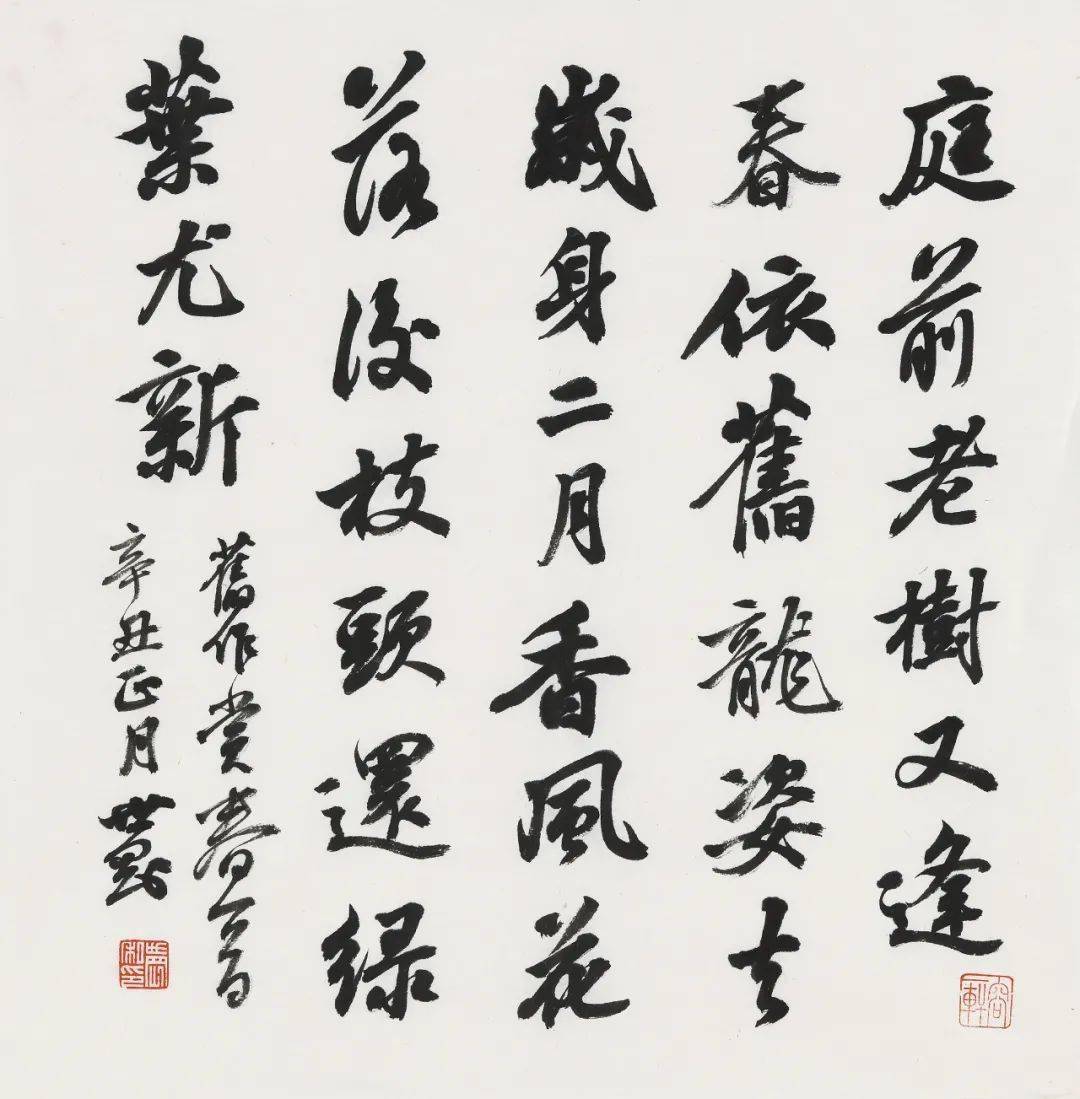 庭前老樹又逢
春依舊龍姿
歲身二月香風花
落後枝頭還綠
葉尤新
舊作賞春一首
辛丑正月世